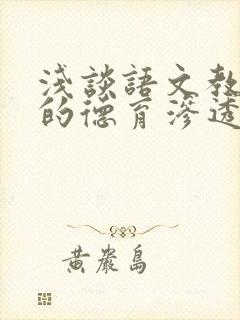 浅談語文教
的德育滲透
黄巖島